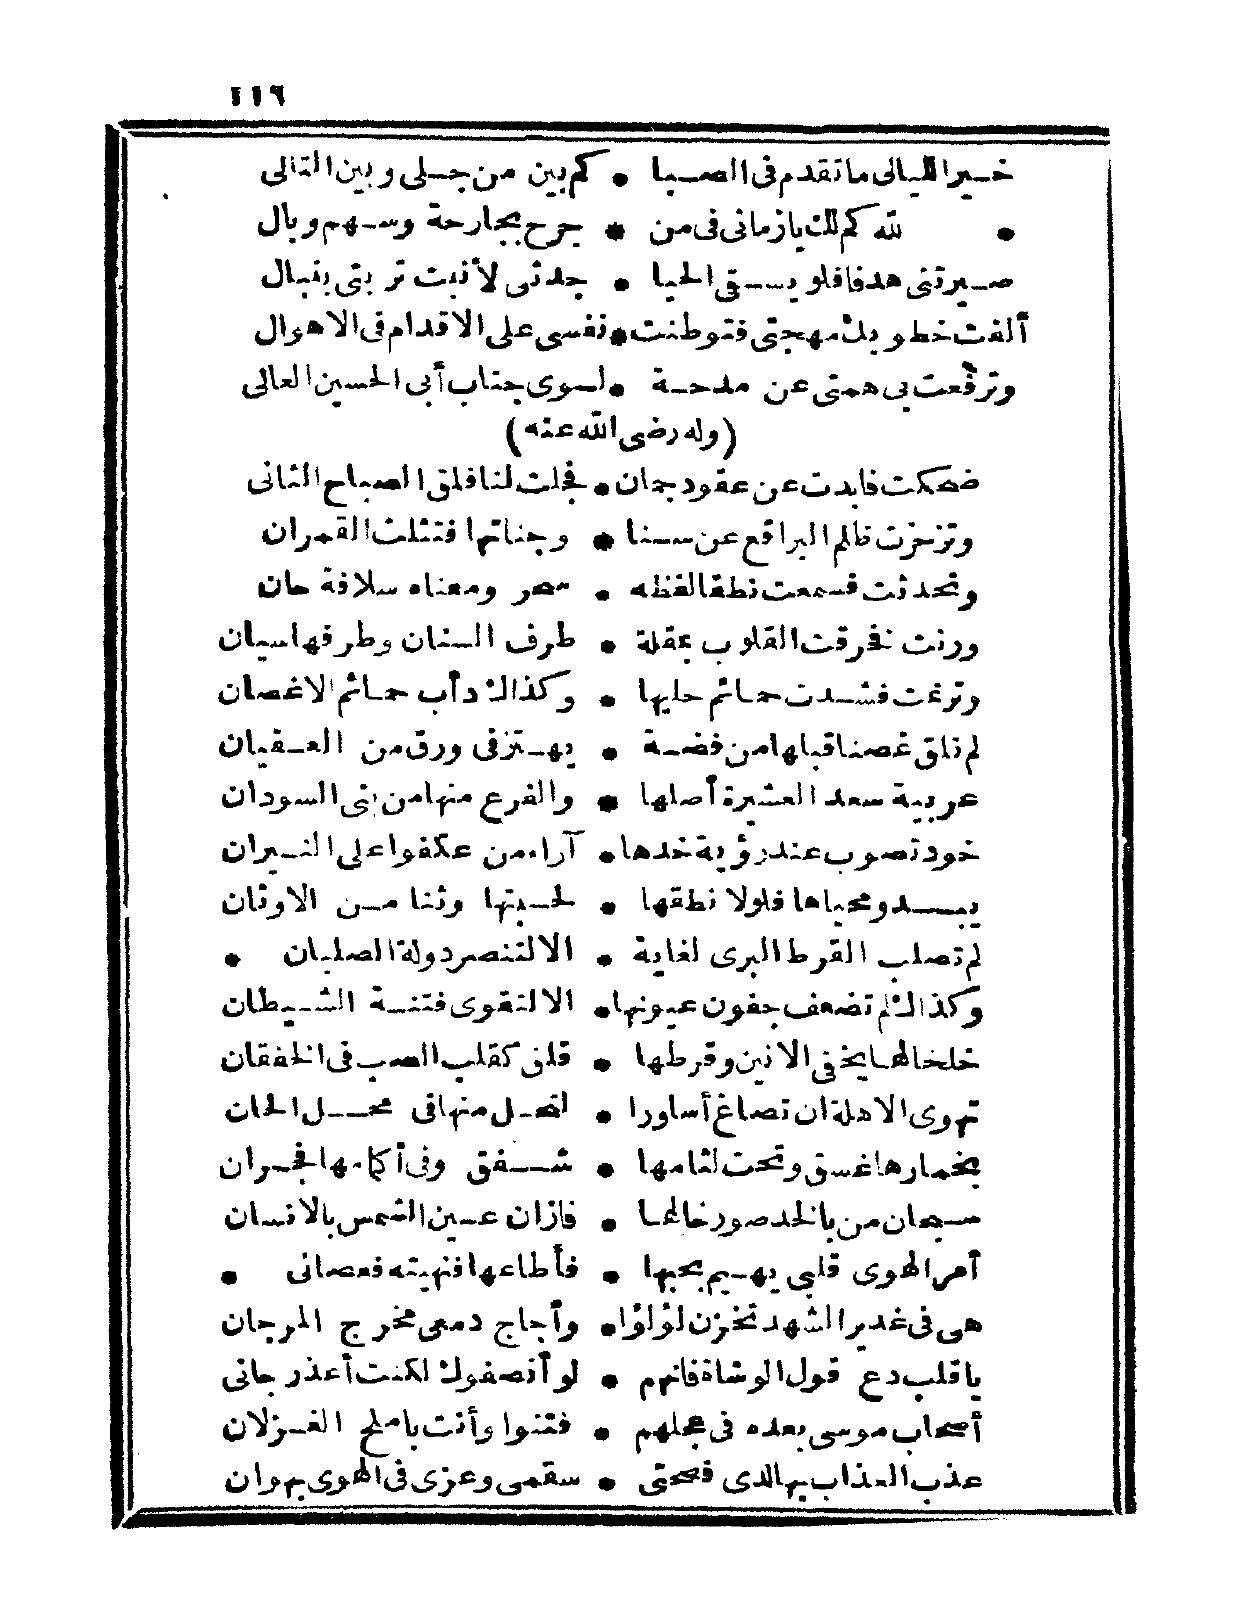 ١١٦
خير الليالى ما تقدم فى الصبا • كم بين من جلى وبين التالى
• لله كم لك يا زمانى فى من • جرح بجارحة وسهم وبال
صيرتنى هدفا فلو يسقى الحيا • جدثى لأنبت تربتى بنبال
ألفت خطوبك مهجتى فتوطنت • نفسى على الاقدام فى الاهوال
وترفعت بى همتى عن مدحة • لسوى جناب أبى الحسين العالى
(وله رضى الله عنه)
ضحكت فابدت عن عقود جمان • فجلت لنا فلق الصباح الثانى
وتزحزحت ظلم البراقع عن سنا • وجناتها فتثلث القمران
وتحدثت فسمعت نطقا لفظه • سحر ومعناه سلافة حان
ورنت فخرقت القلوب بمقلة • طرف السنان وطرفها سيان
وترنمت فشدت حمائم حليها • وكذاك دأب حمائم الاغصان
لم تلق غصنا قبلها من فضة • يهتز فى ورق من العقيان
عربية سعد العشيرة أصلها • والفرع منها من بنى السودان
خود تصوب عند رؤية خدها • آراء من عكفوا على النيران
يبدو محياها فلولا نطقها • لحسبتها وثنا من الاوثان
لم تصلب القرط البرى لغاية • الا لتنصر دولة الصلبان •
وكذاك لم تضعف جفون عيونها • الا لتقوى فتنة الشيطان
خلخالها يخفى الانين وقرطها • قلق كقلب الصب فى الخفقان
تهوى الاهلة ان تصاغ أساورا • لتحل منها فى محل الحان
بخمارها غسق وتحت لثامها • شفق وفى أكمامها فجران
سبحان من بالخد صور خالها • فازان عين الشمس بالانسان
أمر الهوى قلبى يهيم بحبها • فأطاعها فنهيته فعصانى •
هى فى غدير الشهد تخزن لؤلؤا • وأجاج دمعى مخرج المرجان
يا قلب دع قول الوشاة فانهم • لو أنصفوك لكنت أعذر جانى
أصحاب موسى بعده فى عجلهم • فتنوا وأنت باملح الغزلان
عذب العذاب بها لدى فصحتى • سقمى وعزى فى الهوى بهوان